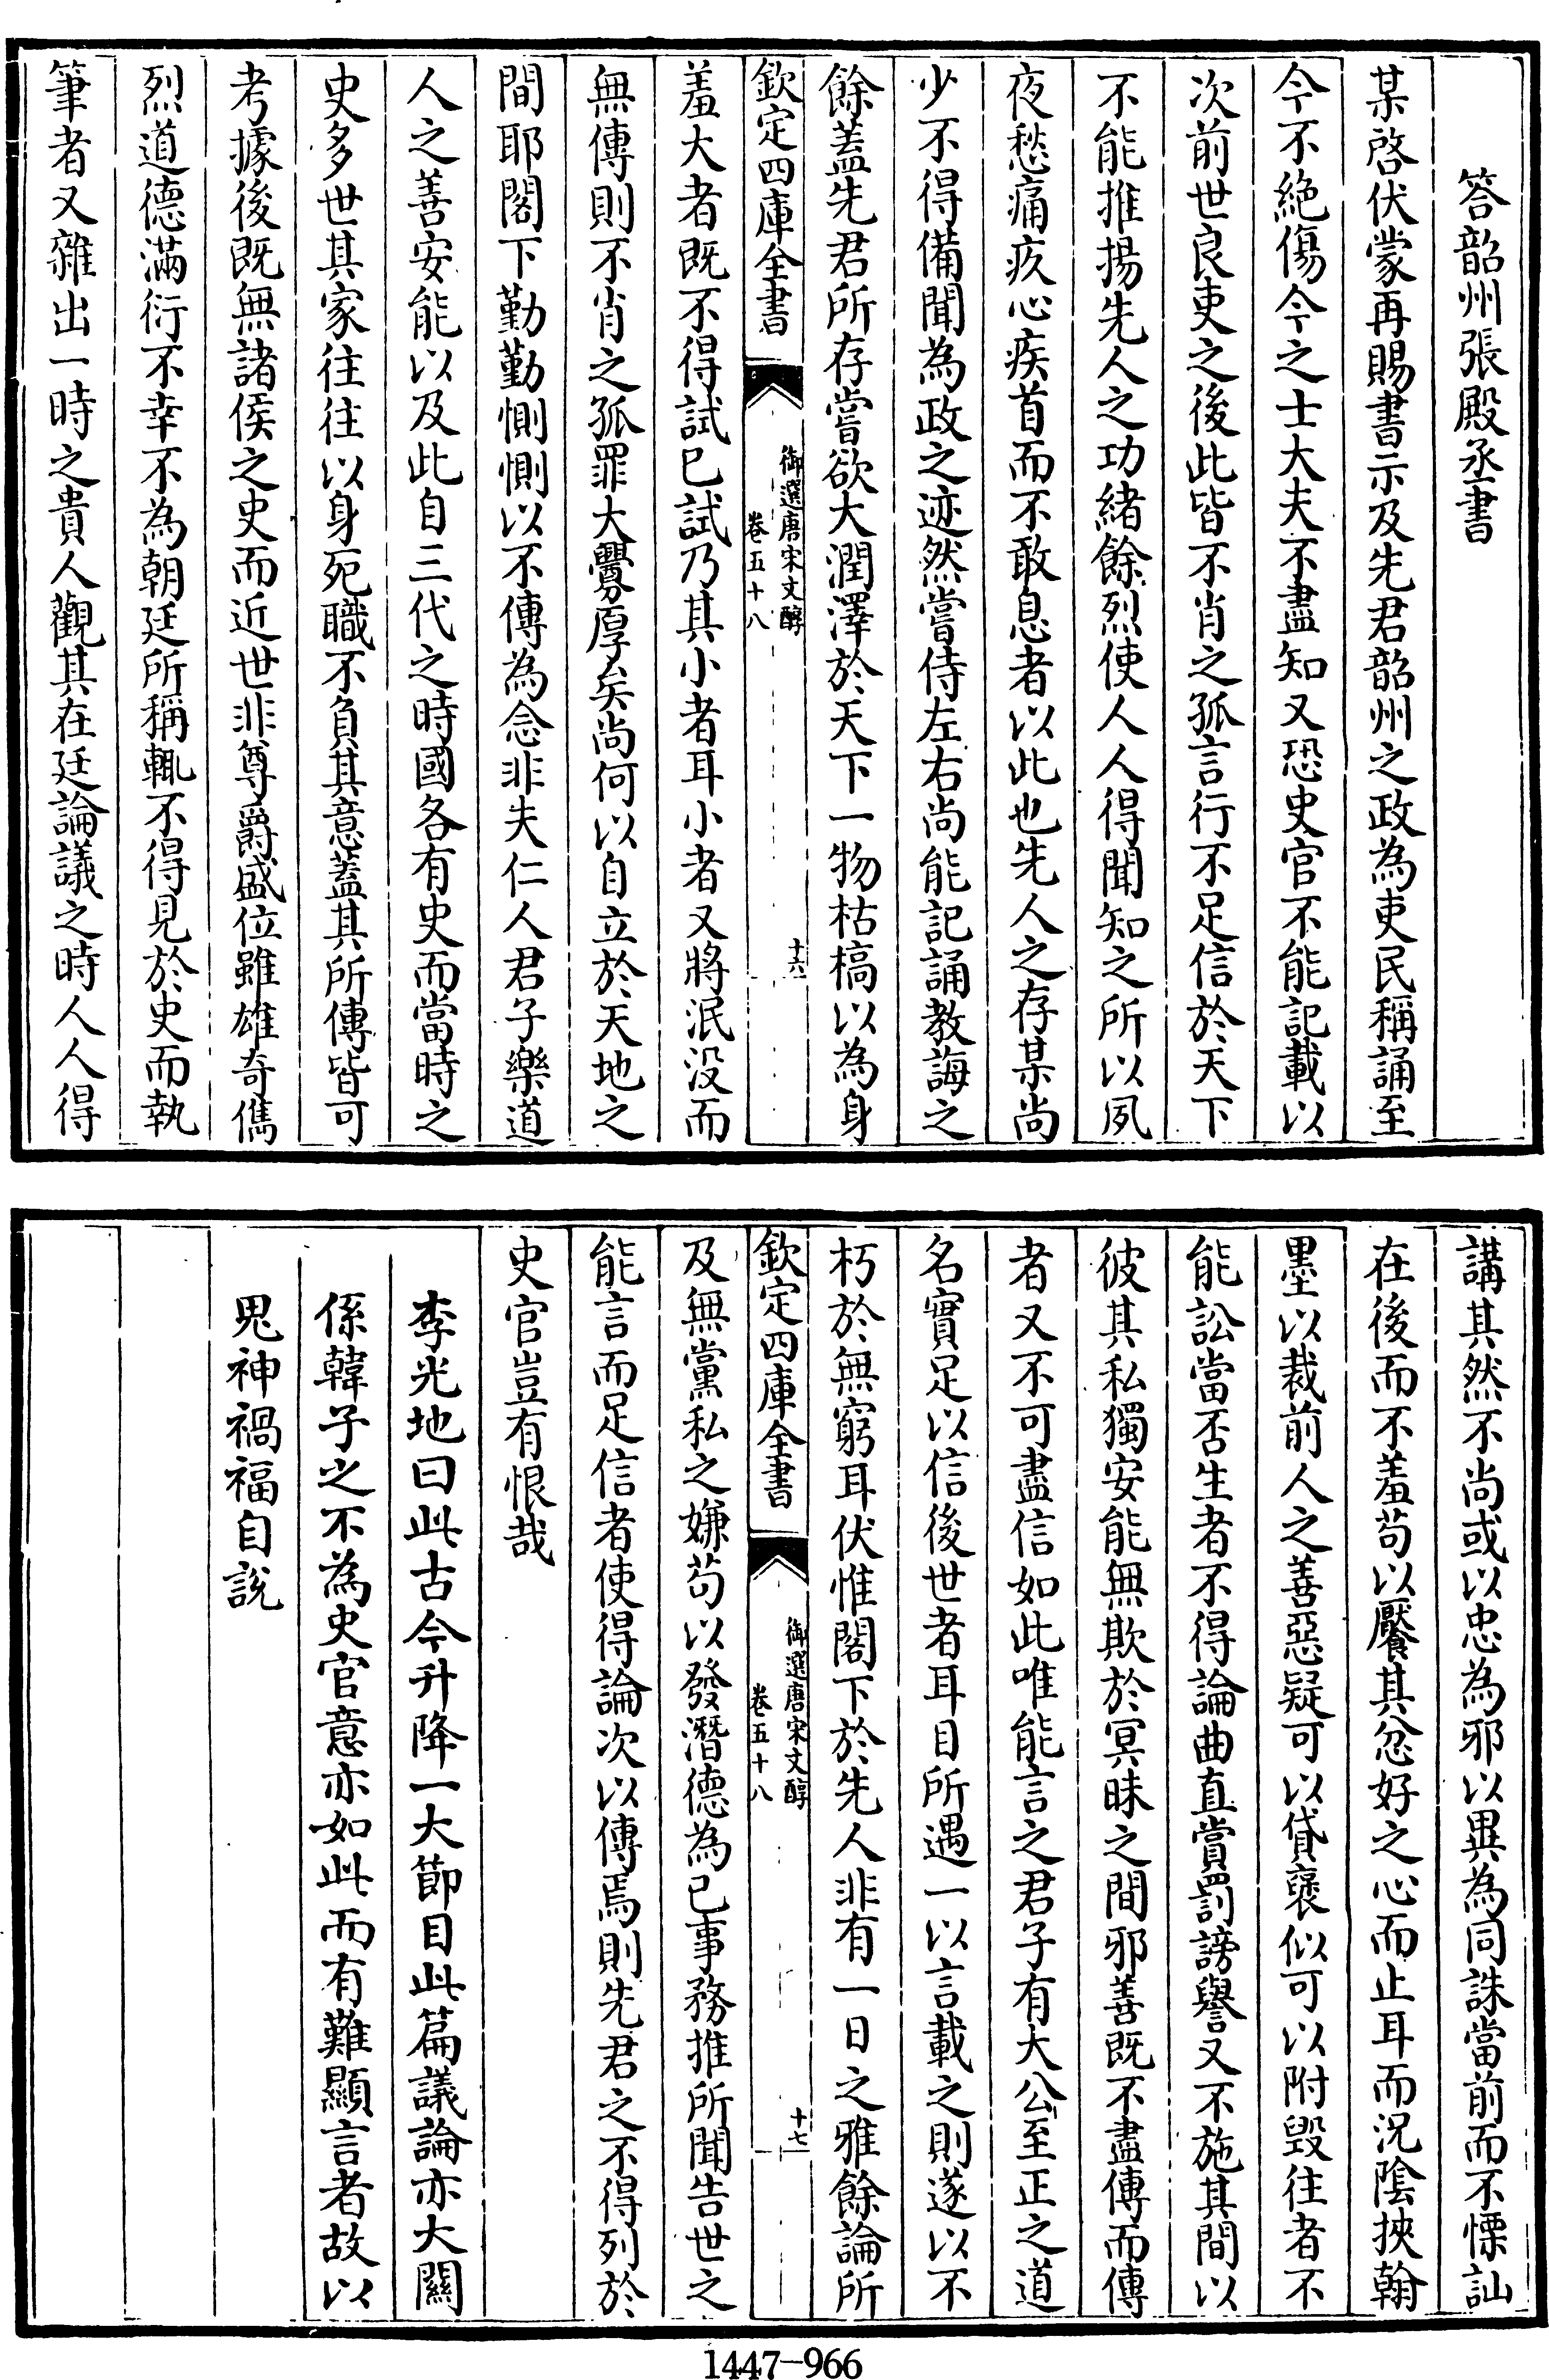 答韶州張殿丞書
某啓伏蒙再賜書示及先君韶州之政為吏民稱誦至
今不絶傷今之士大夫不盡知又恐史官不能記載以
次前世良吏之後此皆不肖之孤言行不足信於天下
不能推揚先人之功緒餘烈使人人得聞知之所以夙
夜愁痛疚心疾首而不敢息者以此也先人之存某尚
少不得備聞為政之迹然嘗侍左右尚能記誦教誨之
餘蓋先君所存嘗欲大潤澤於天下一物枯槁以為身
欽定四庫全書
御選唐宋文醇
卷五十八
十六
羞大者既不得試已試乃其小者耳小者又將泯没而
無傳則不肖之孤罪大釁厚矣尚何以自立於天地之
間耶閣下勤勤惻惻以不傳為念非夫仁人君子樂道
人之善安能以及此自三代之時國各有史而當時之
史多世其家往往以身死職不負其意蓋其所傳皆可
考據後既無諸侯之史而近世非尊爵盛位雖雄奇儁
烈道德滿衍不幸不為朝廷所稱輒不得見於史而執
筆者又雜出一時之貴人觀其在廷論議之時人人得
講其然不尚或以忠為邪以異為同誅當前而不慄訕
在後而不羞苟以饜其忿好之心而止耳而況陰挾翰
墨以裁前人之善惡疑可以貸襃似可以附毀往者不
能訟當否生者不得論曲直賞罰謗譽又不施其間以
彼其私獨安能無欺於冥昧之間邪善既不盡傳而傳
者又不可盡信如此唯能言之君子有大公至正之道
名實足以信後世者耳目所遇一以言載之則遂以不
朽於無窮耳伏惟閣下於先人非有一日之雅餘論所
欽定四庫全書
御選唐宋文醇
卷五十八
十七
及無黨私之嫌苟以發潛德為已事務推所聞告世之
能言而足信者使得論次以傳焉則先君之不得列於
史官豈有恨哉
李光地曰此古今升降一大節目此篇議論亦大關
係韓子之不為史官意亦如此而有難顯言者故以
鬼神禍福自説
1447-966